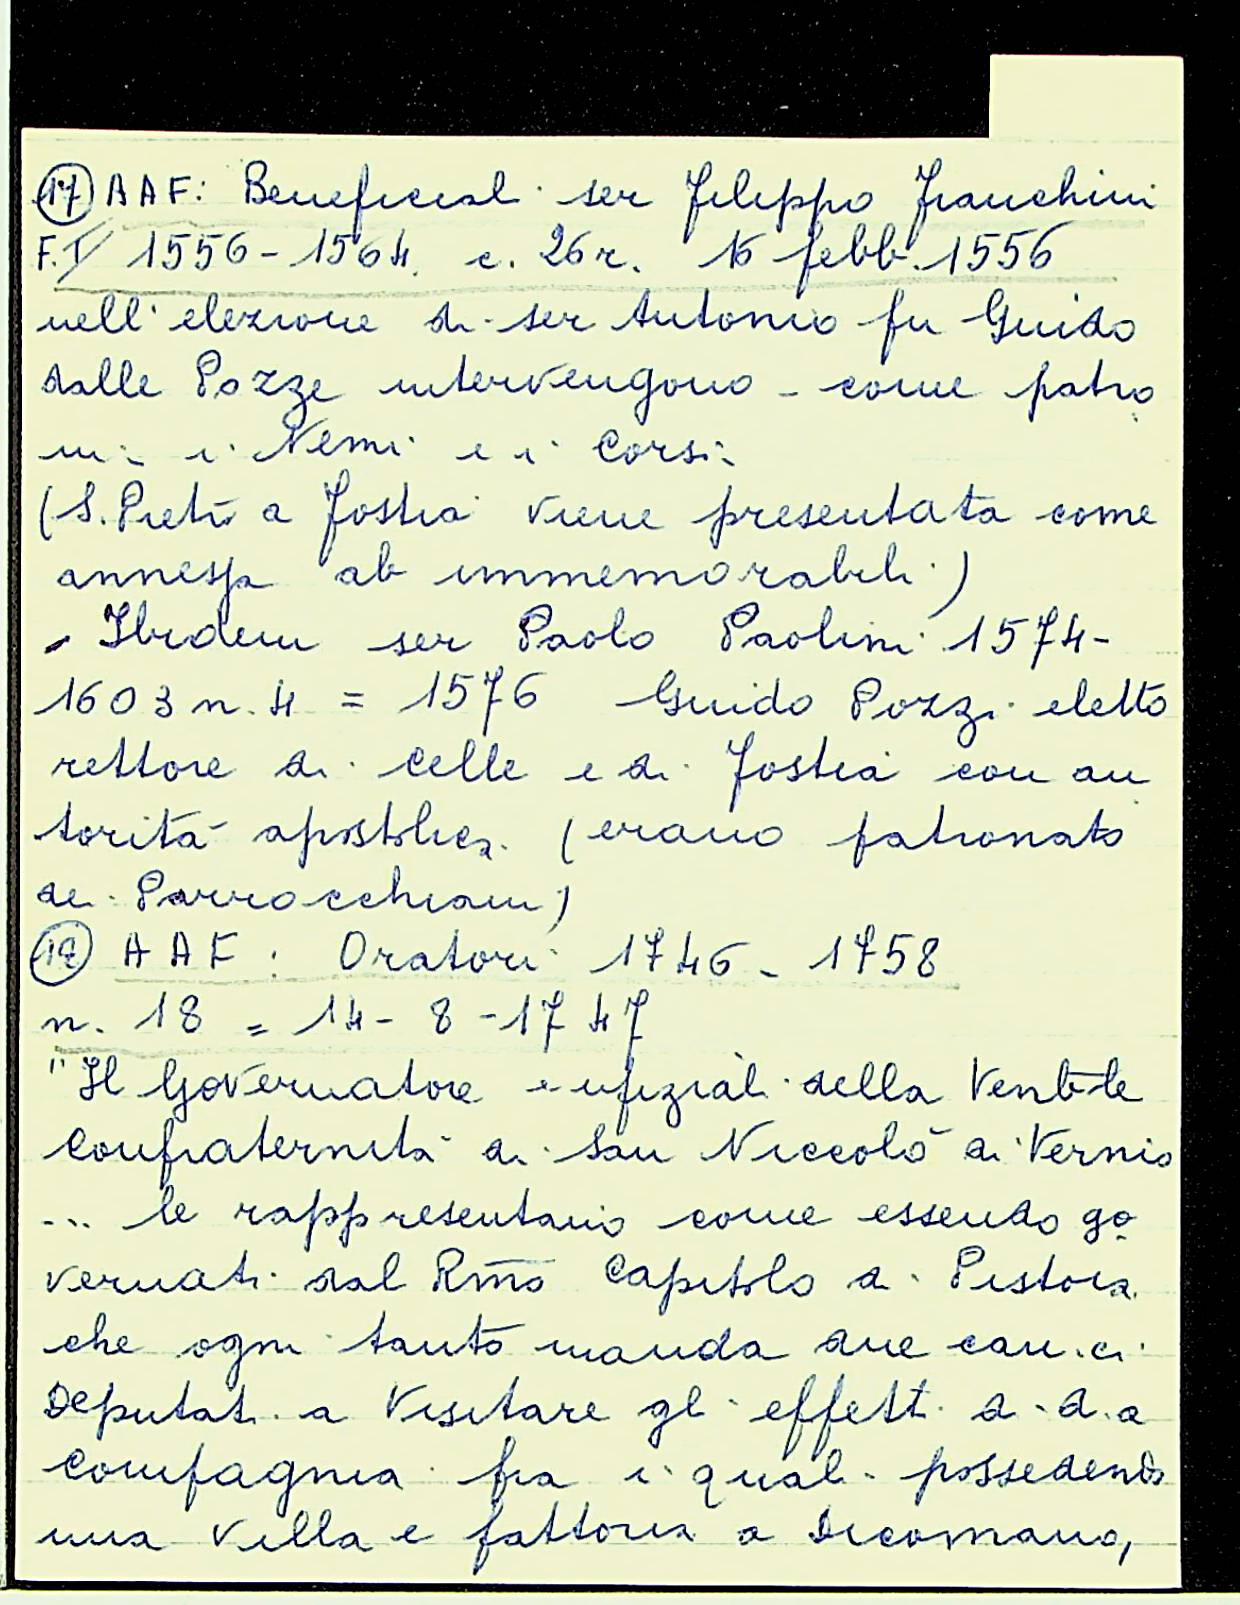 17 AAF: Beneficiali ser Filippo Franchini
F.I 1556-1564. c. 26r. 16 febb. 1556
nell'elezione di ser Antonio fu Guido
dalle Pozze intervengono - come patro
ni: i Nemi e i Corsi:
(S. Pietro a Fostia viene presentata come
annessa ab immemorabili)
- Ibidem ser Paolo Paolini 1574-
1603 n. 4 = 1576 Guido Pozzi eletto
rettore di Celle e di Fostia con au
torità apostolica. (erano patronato
dei Parrocchiani)
AAF: Oratori 1746 - 1758
n. 18 = 14-8-1747
"Il Governatore e ufiziali della Venb-le
Confraternita di San Niccolò di Vernio
... le rappresentano come essendo go
vernati dal Rmo Capitolo di Pistoia
che ogni tanto manda due can.ci
Deputati a Visitare gli effetti di d.a
Compagnia fra i quali possedendo
una Villa e fattoria a Dicomano,